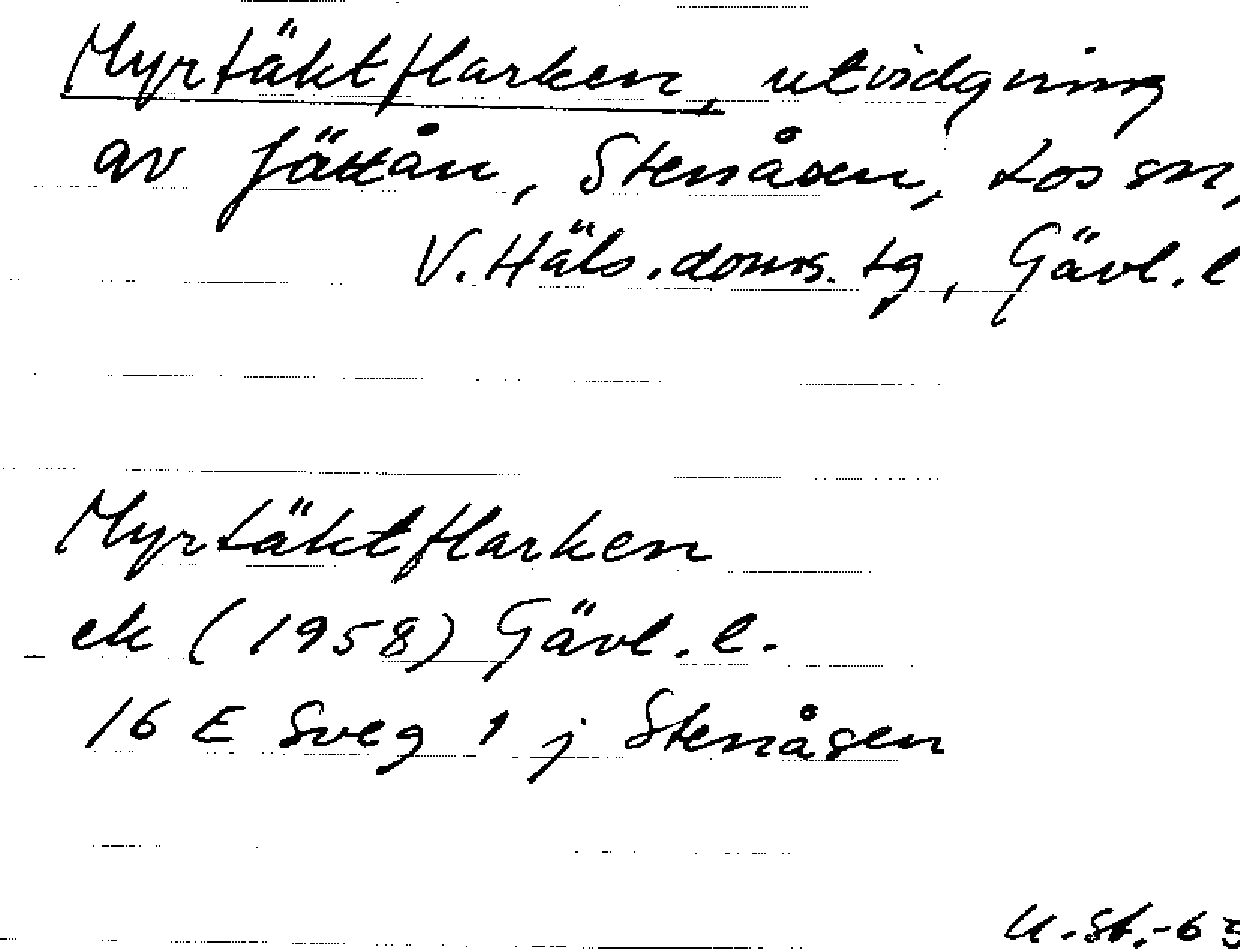 Myrtäktflarken, utvidgning
av Jättån, Stenåsen, Los sn,
V. Häls. doms. tg, Gävl. l
Myrtäktflarken
ek (1958) Gävl. l.
16 E Sveg 1 j Stenåsen
U. St. -63